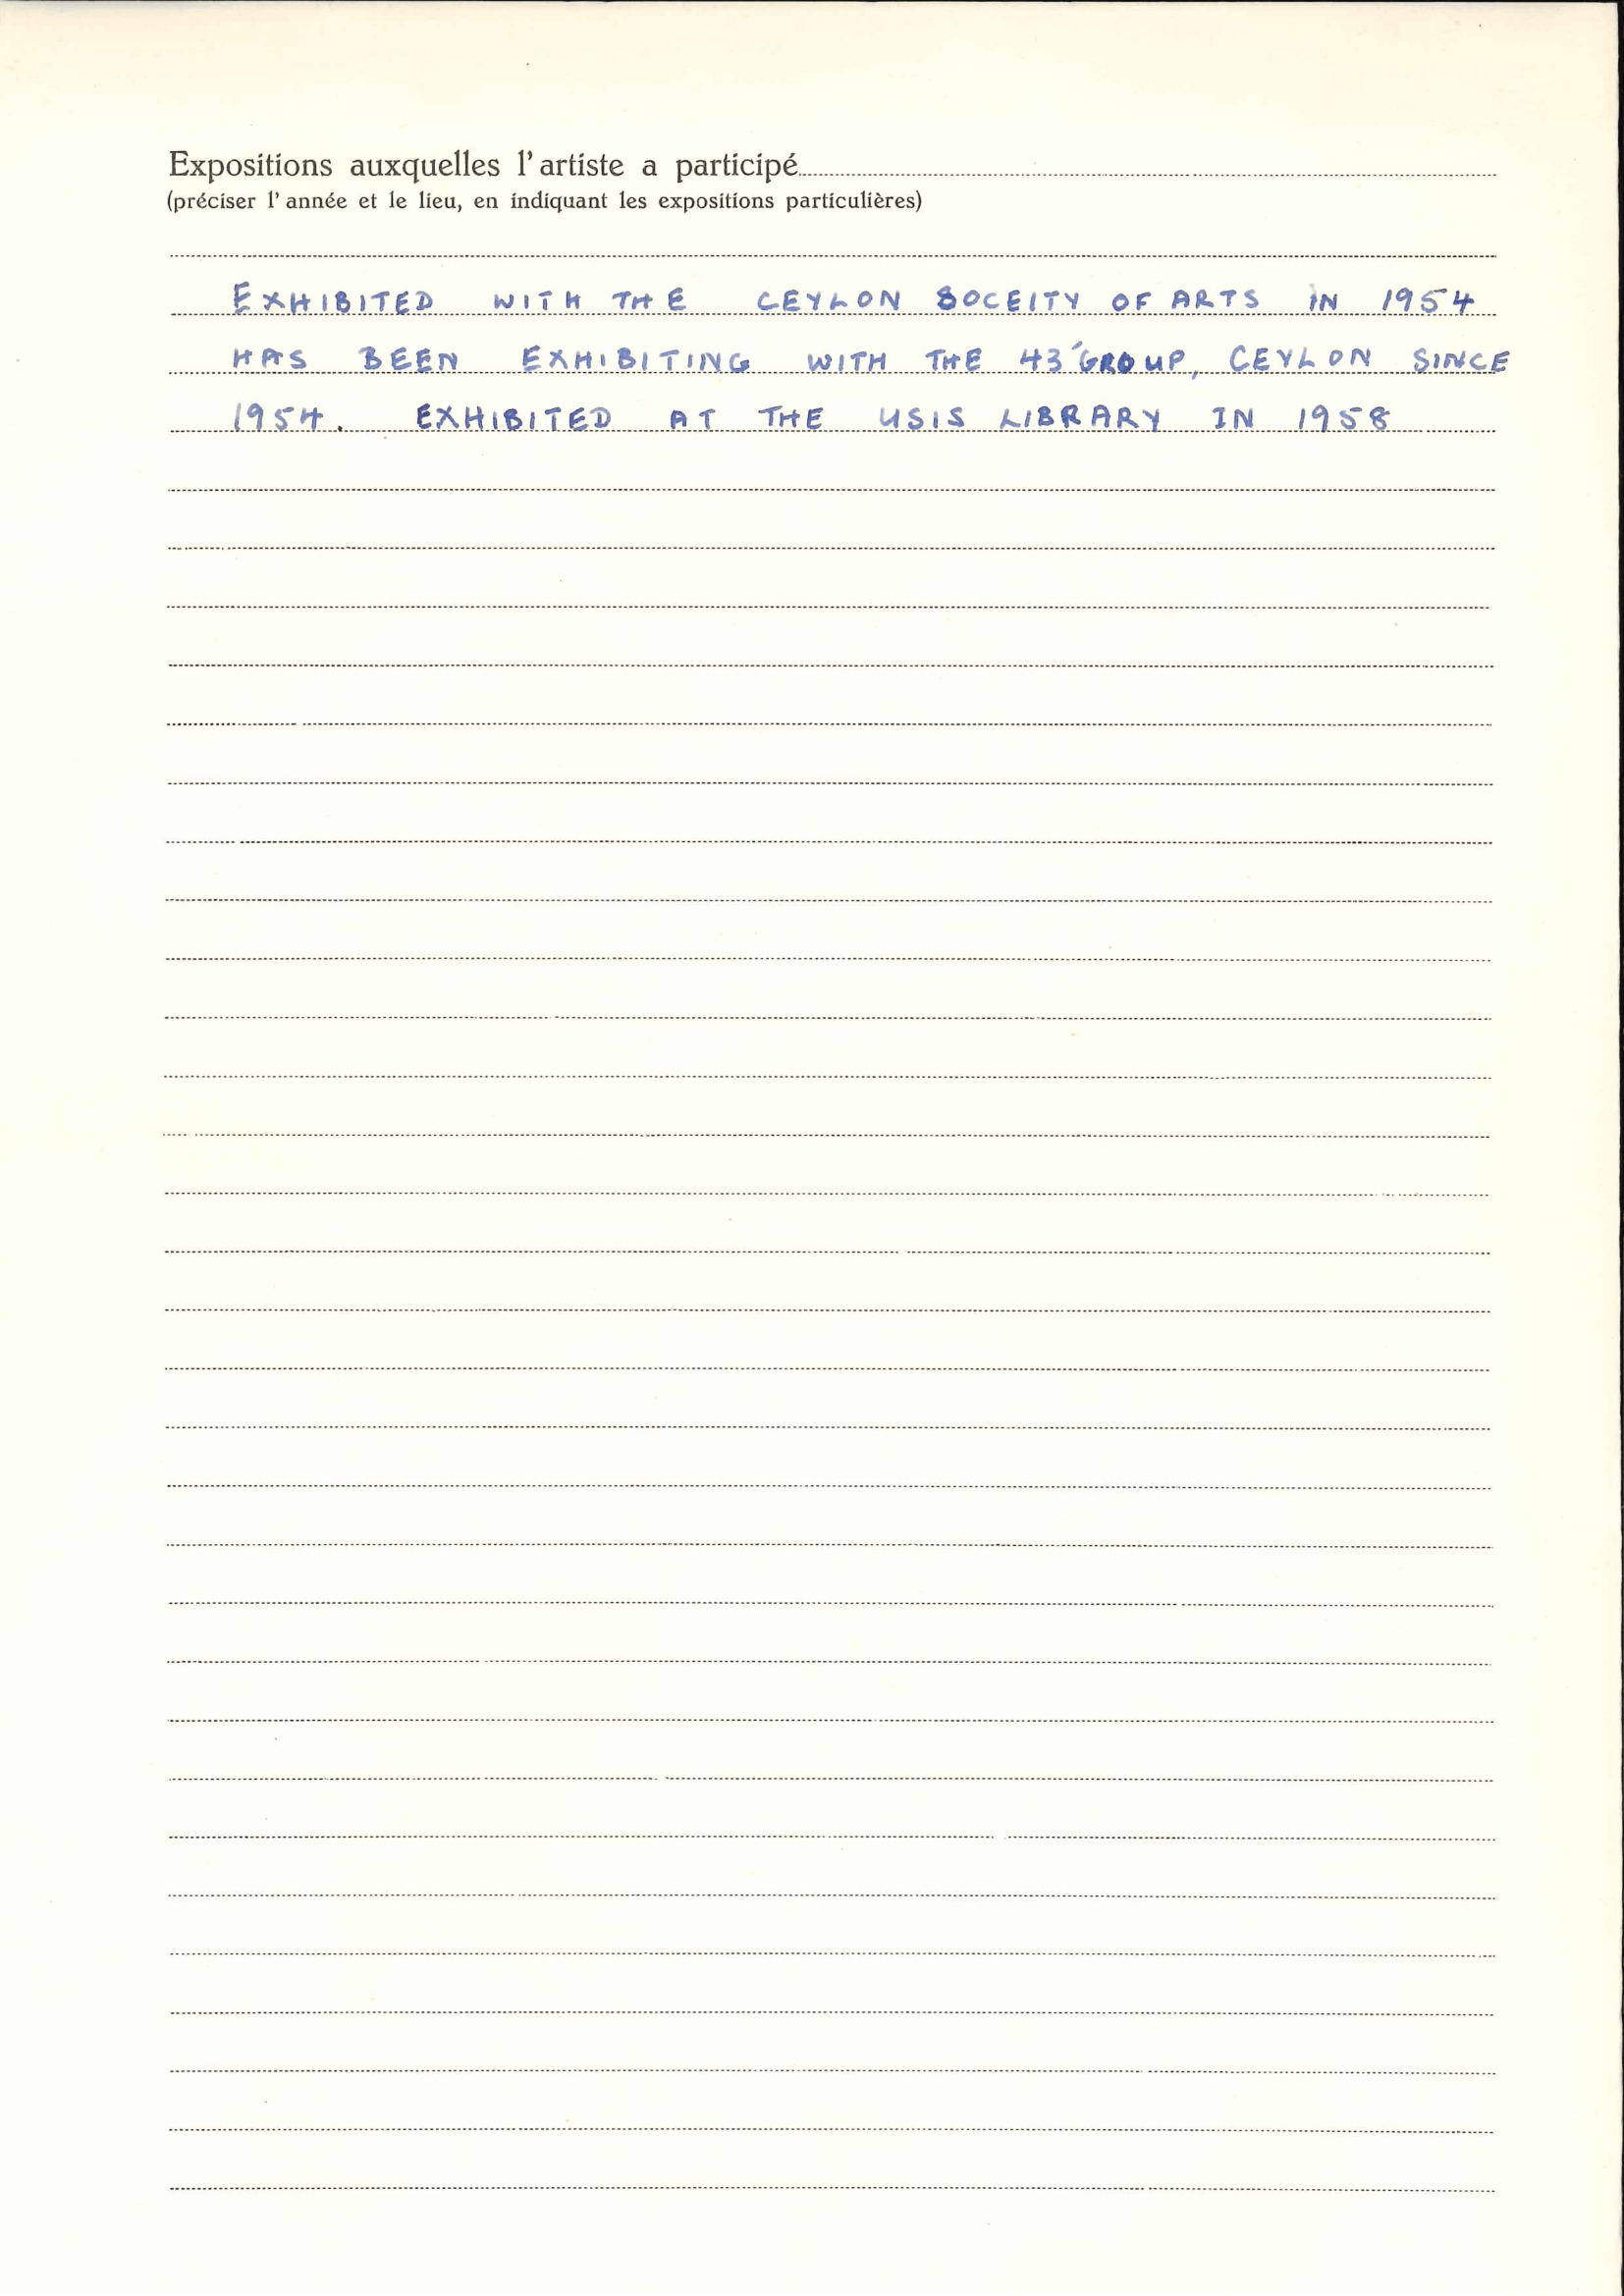 Expositions auxquelles l'artiste a participé
(préciser l'année et le lieu, en indiquant les expositions particulières)
EXHIBITED WITH THE CEYLON SOCEITY OF ARTS IN 1954
HAS BEEN EXHIBITING WITH THE 43'GROUP, CEYLON SINCE
1954. EXHIBITED AT THE USIS LIBRARY IN 1958